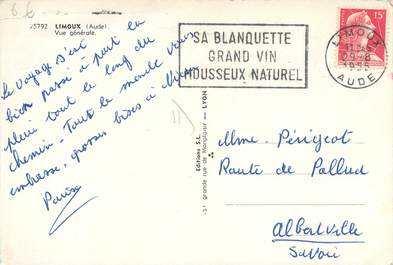 6 €
25792 LIMOUX (Aude).
Vue générale.
Le voyage s'est
bien passé à part la
pluie tout le long du
chemin. Tout le monde vous
embrasse, grosses bises à
SA BLANQUETTE
GRAND VIN
MOUSSEUX NATUREL
LIMOUX
29-8
1955
AUDE
15F
Éditions S.L.
grande rue de Monplaisir - LYON
Mme Périgot
Route de Pallud
Albertville
Savoie